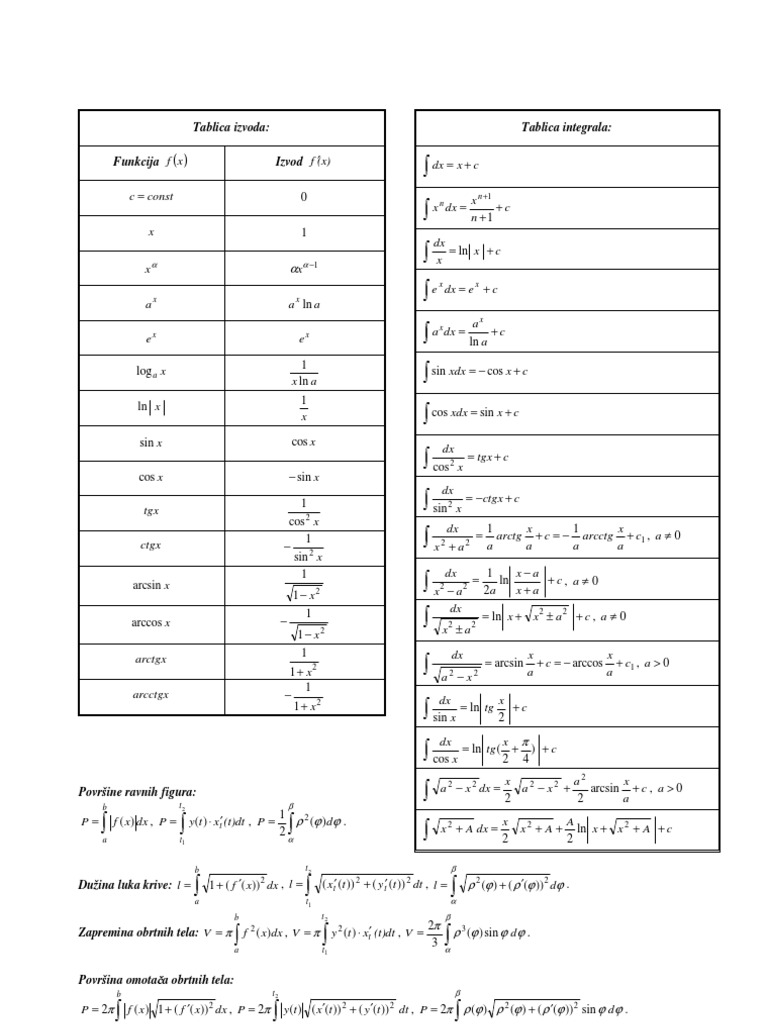 Tablica izvoda:
Funkcija f(x) Izvod f′(x)
c = const 0
x 1
x^α αx^(α−1)
a^x a^x ln a
e^x e^x
log_a x 1/(x ln a)
ln|x| 1/x
sin x cos x
cos x − sin x
tgx 1/(cos² x)
ctgx −1/(sin² x)
arcsin x 1/√(1−x²)
arccos x −1/√(1−x²)
arctgx 1/(1+x²)
arcctgx −1/(1+x²)
Tablica integrala:
∫dx = x + c
∫x^n dx = x^(n+1)/(n+1) + c
∫dx/x = ln|x| + c
∫e^x dx = e^x + c
∫a^x dx = a^x/(ln a) + c
∫sin xdx = − cos x + c
∫cos xdx = sin x + c
∫dx/(cos² x) = tgx + c
∫dx/(sin² x) = −ctgx + c
∫dx/(x² + a²) = (1/a) arctg (x/a) + c = −(1/a) arcctg (x/a) + c₁, a ≠ 0
∫dx/(x² − a²) = (1/2a) ln|(x − a)/(x + a)| + c, a ≠ 0
∫dx/√(x² ± a²) = ln|x + √(x² ± a²)| + c, a ≠ 0
∫dx/√(a² − x²) = arcsin (x/a) + c = − arccos (x/a) + c₁, a > 0
∫dx/(sin x) = ln|tg (x/2)| + c
∫dx/(cos x) = ln|tg(x/2 + π/4)| + c
∫√(a² − x²) dx = (x/2)√(a² − x²) + (a²/2) arcsin (x/a) + c, a > 0
∫√(x² + A) dx = (x/2)√(x² + A) + (A/2) ln|x + √(x² + A)| + c
Površine ravnih figura:
P = ∫_a^b |f(x)|dx, P = ∫_{t₁}^{t₂} y(t)·x′_t(t)dt, P = (1/2)∫_α^β ρ²(φ)dφ.
Dužina luka krive: l = ∫_a^b √(1 + (f′(x))²) dx, l = ∫_{t₁}^{t₂} √((x′_t(t))² + (y′_t(t))²) dt, l = ∫_α^β √(ρ²(φ) + (ρ′(φ))²) dφ.
Zapremina obrtnih tela: V = π∫_a^b f²(x)dx, V = π∫_{t₁}^{t₂} y²(t)·x′_t(t)dt, V = (2π/3)∫_α^β ρ³(φ)sin φ dφ.
Površina omotača obrtnih tela:
P = 2π∫_a^b |f(x)|√(1 + (f′(x))²) dx, P = 2π∫_{t₁}^{t₂} |y(t)|√((x′(t))² + (y′(t))²) dt, P = 2π∫_α^β ρ(φ)√(ρ²(φ) + (ρ′(φ))²) sin φ dφ.